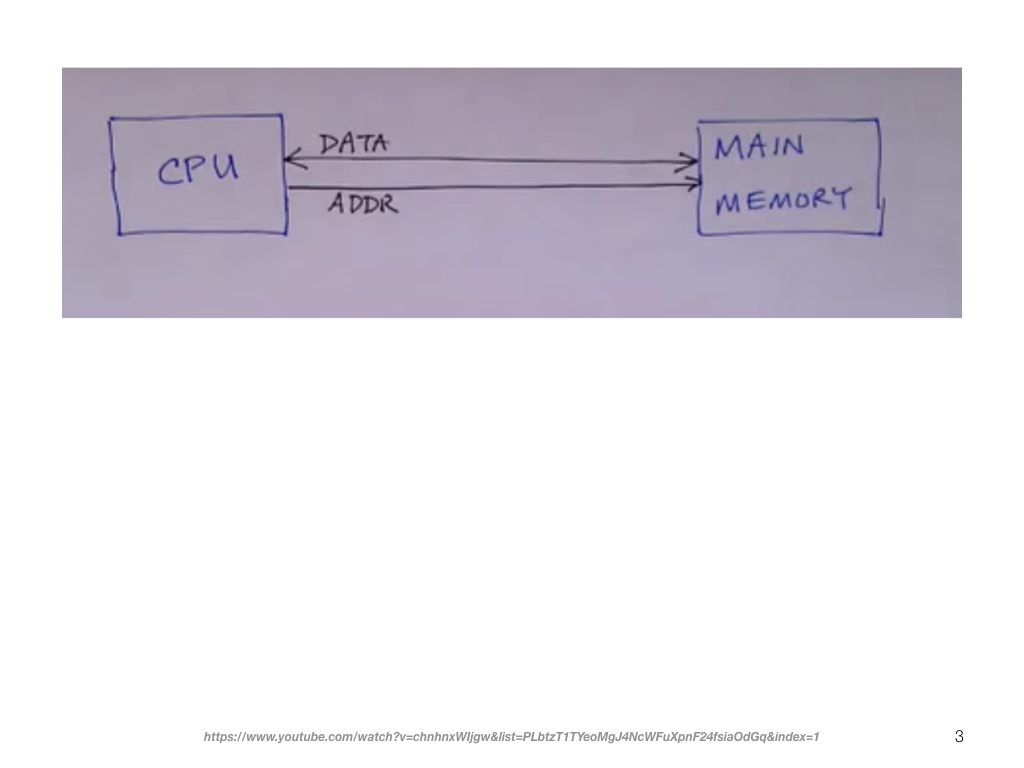 CPU
DATA
ADDR
MAIN
MEMORY
https://www.youtube.com/watch?v=chnhnxWIjgw&list=PLbtzT1TYeoMgJ4NcWFuXpnF24fsiaOdGq&index=1
3